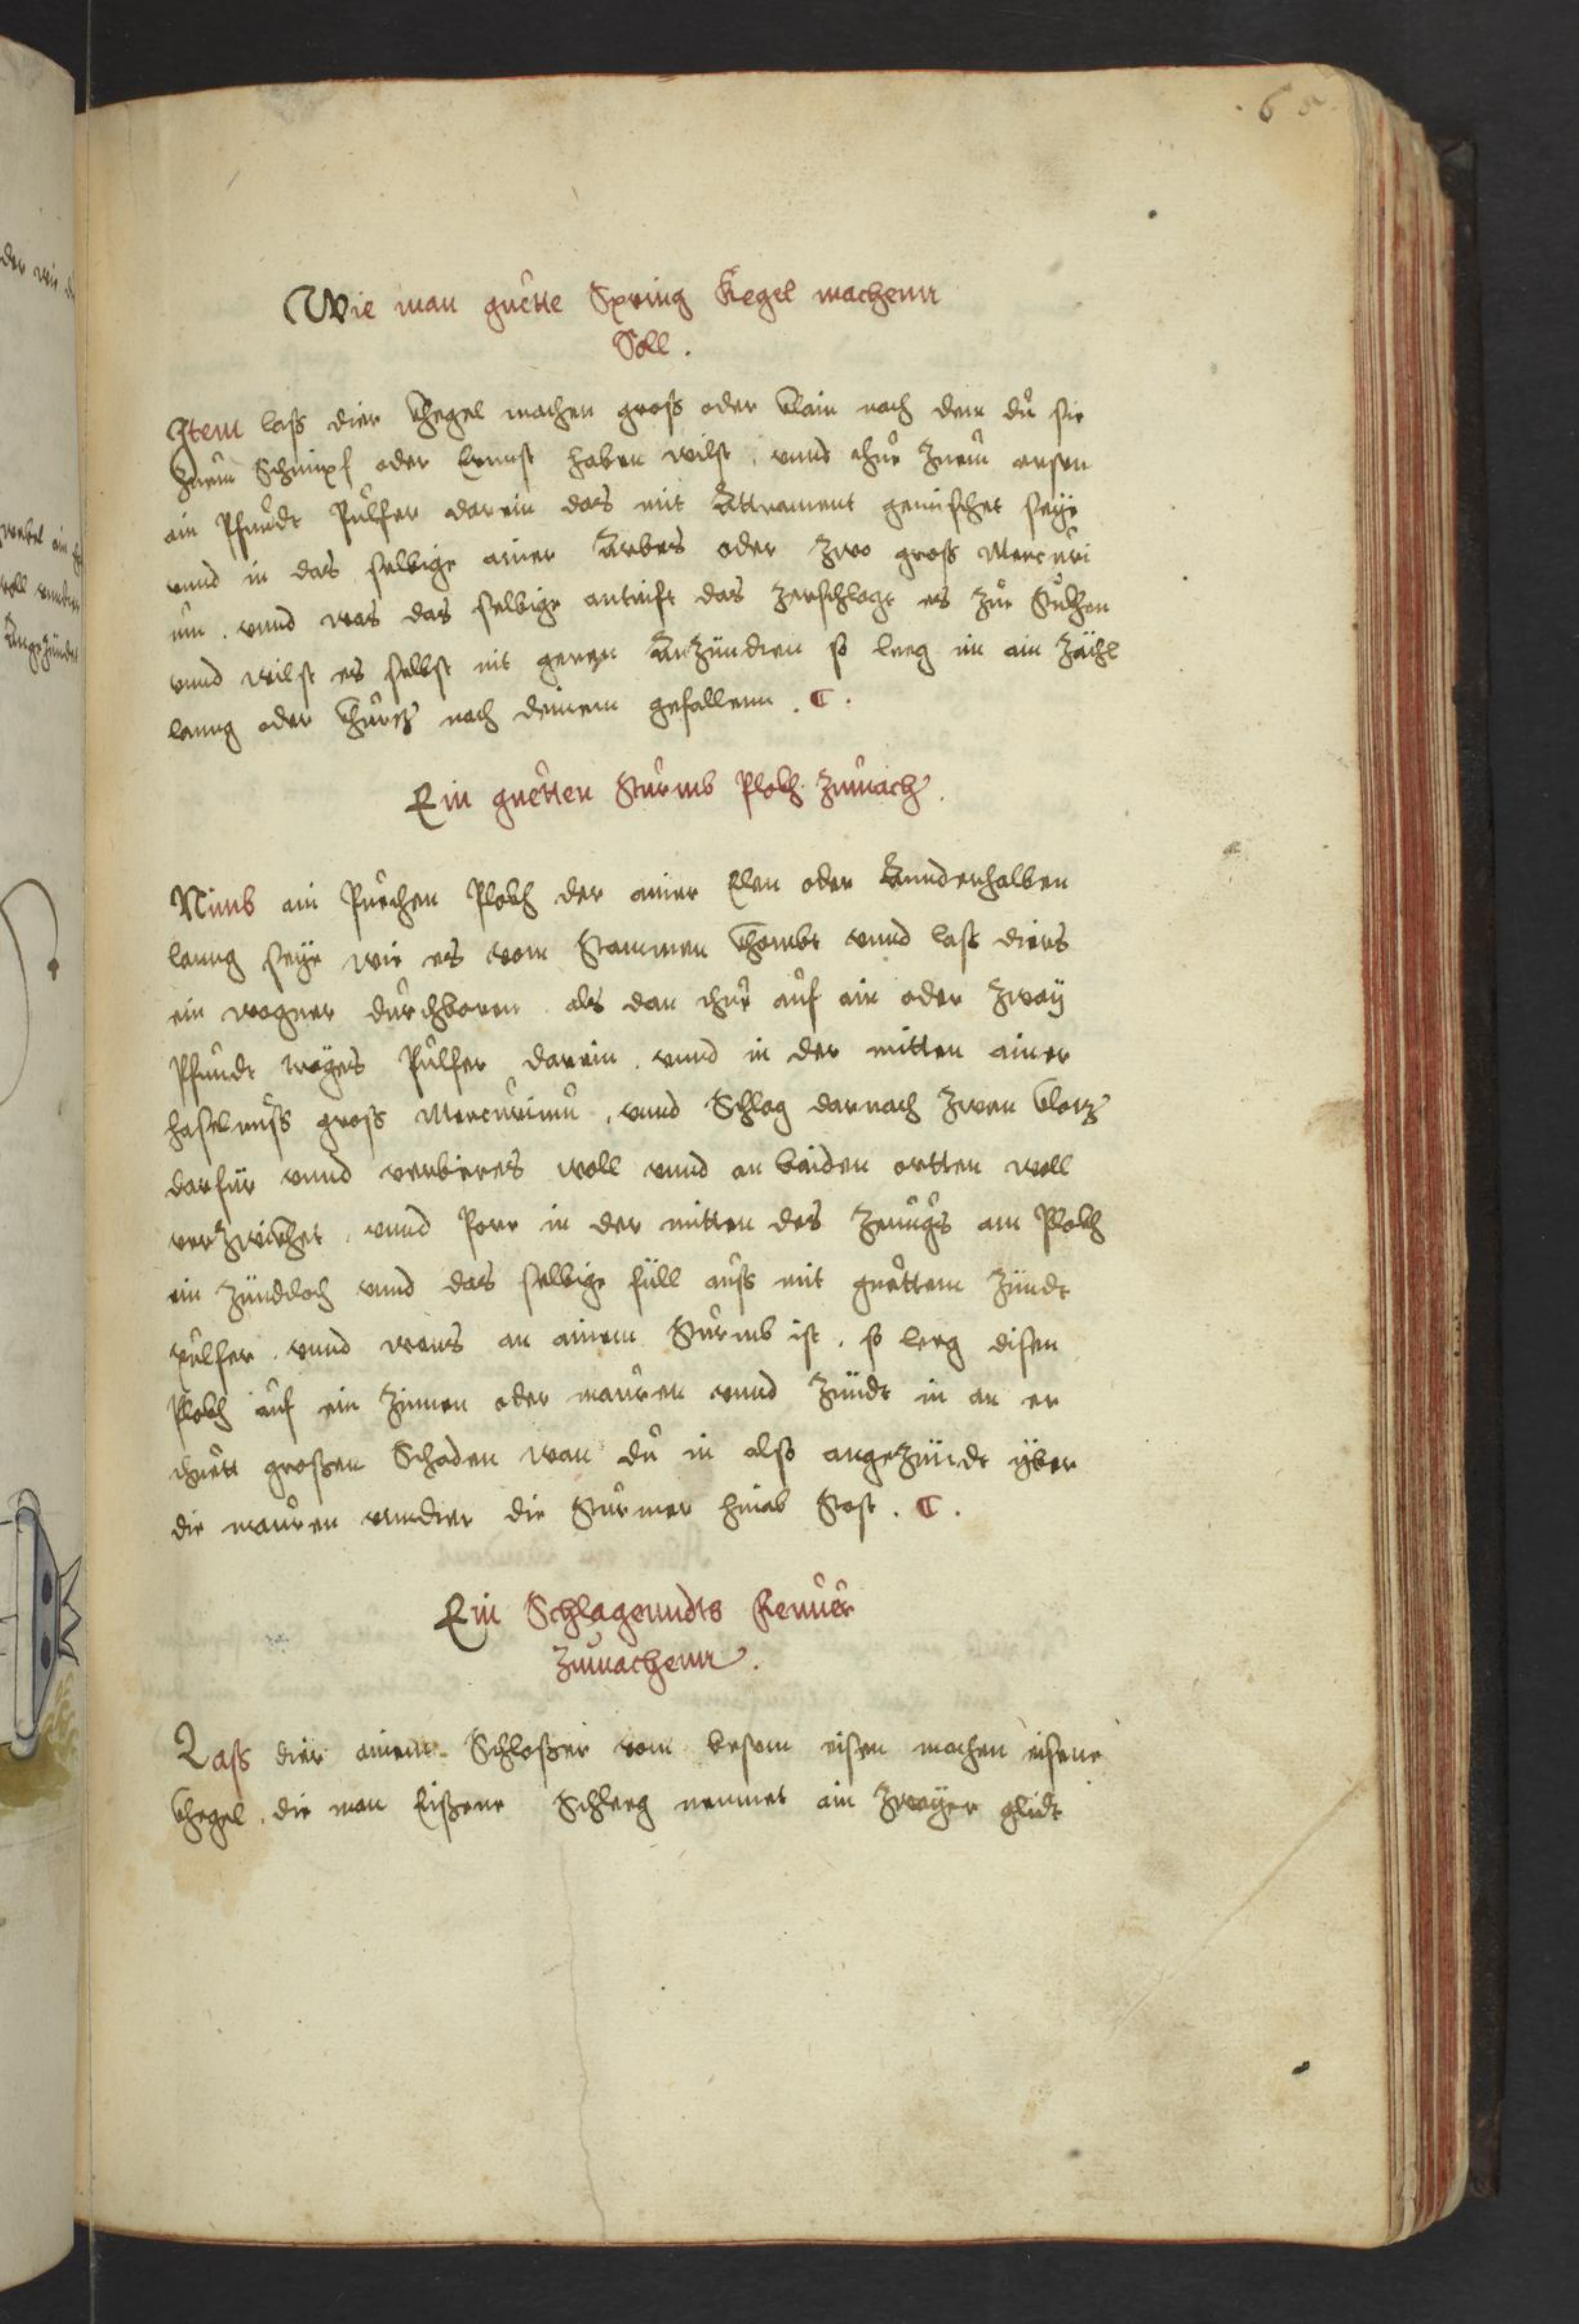 65
Wie man guette Spring Kegel machenn
Soll .
Item lass dier khegel machen gross oder klain nach dem du sie
zuem Schimpf oder Ernnst haben wilst . vnnd thue zuem ersten
ain Pfundt Pulfer darein das mit Attrament gemischet seye
vnnd in das selbige ainer Arbes oder zwo gross Mercuri
um . vnnd was das selbige antrift das zerschlagt es zur Stukhen
vnnd wilst es selbst nit geren Anzündten so leeg im ain
lanng oder khurcz nach deinem gefallenn . C .
Ein guetten Sturmb Plokh zumach .
Nimb ain Puechen Plokh der ainer Elen oder Annderhalben
lanng seye wie es vom Stammen khombt vnnd lass diers
ein wagner durchboren . als dan thue auf ain oder zway
Pfundt Pulfer darein . vnnd in der mitten ainer
haselnuss gross Mercurium . vnnd Schlag darnach zwen klotz
darfür vnnd woll vnnd an baiden ortten woll
verzwickhet . vnnd Porr in der mitten des zeuugs am Plokh
ein Zünddloch vnnd das selbige füll auss mit guettem Zündt
pulfer . vnnd wans an ainem Sturmb ist . so leeg disen
Plokh auf ein Zinnen oder mauren vnnd Zündt in an er
thuett grossen Schaden wan du in also angezündt yber
die mauren vnndter die Sturmer hinab Stost . C .
Ein Schlagenndts Feuuer
Zumachenn .
Lass dier ainem Schlosser vom eisen machen eisene
khegel . die man Eissene Schleeg nennet ain zwayer glidt